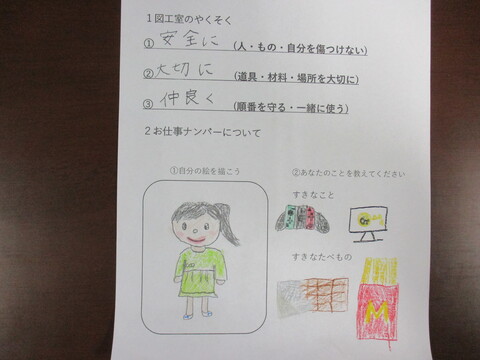 1図工室のやくそく
① 安全に (人・もの・自分を傷つけない)
② 大切に (道具・材料・場所を大切に)
③ 仲良く (順番を守る・一緒に使う)
2お仕事ナンバーについて
①自分の絵を描こう
②あなたのことを教えてください
すきなこと
すきなたべもの
M